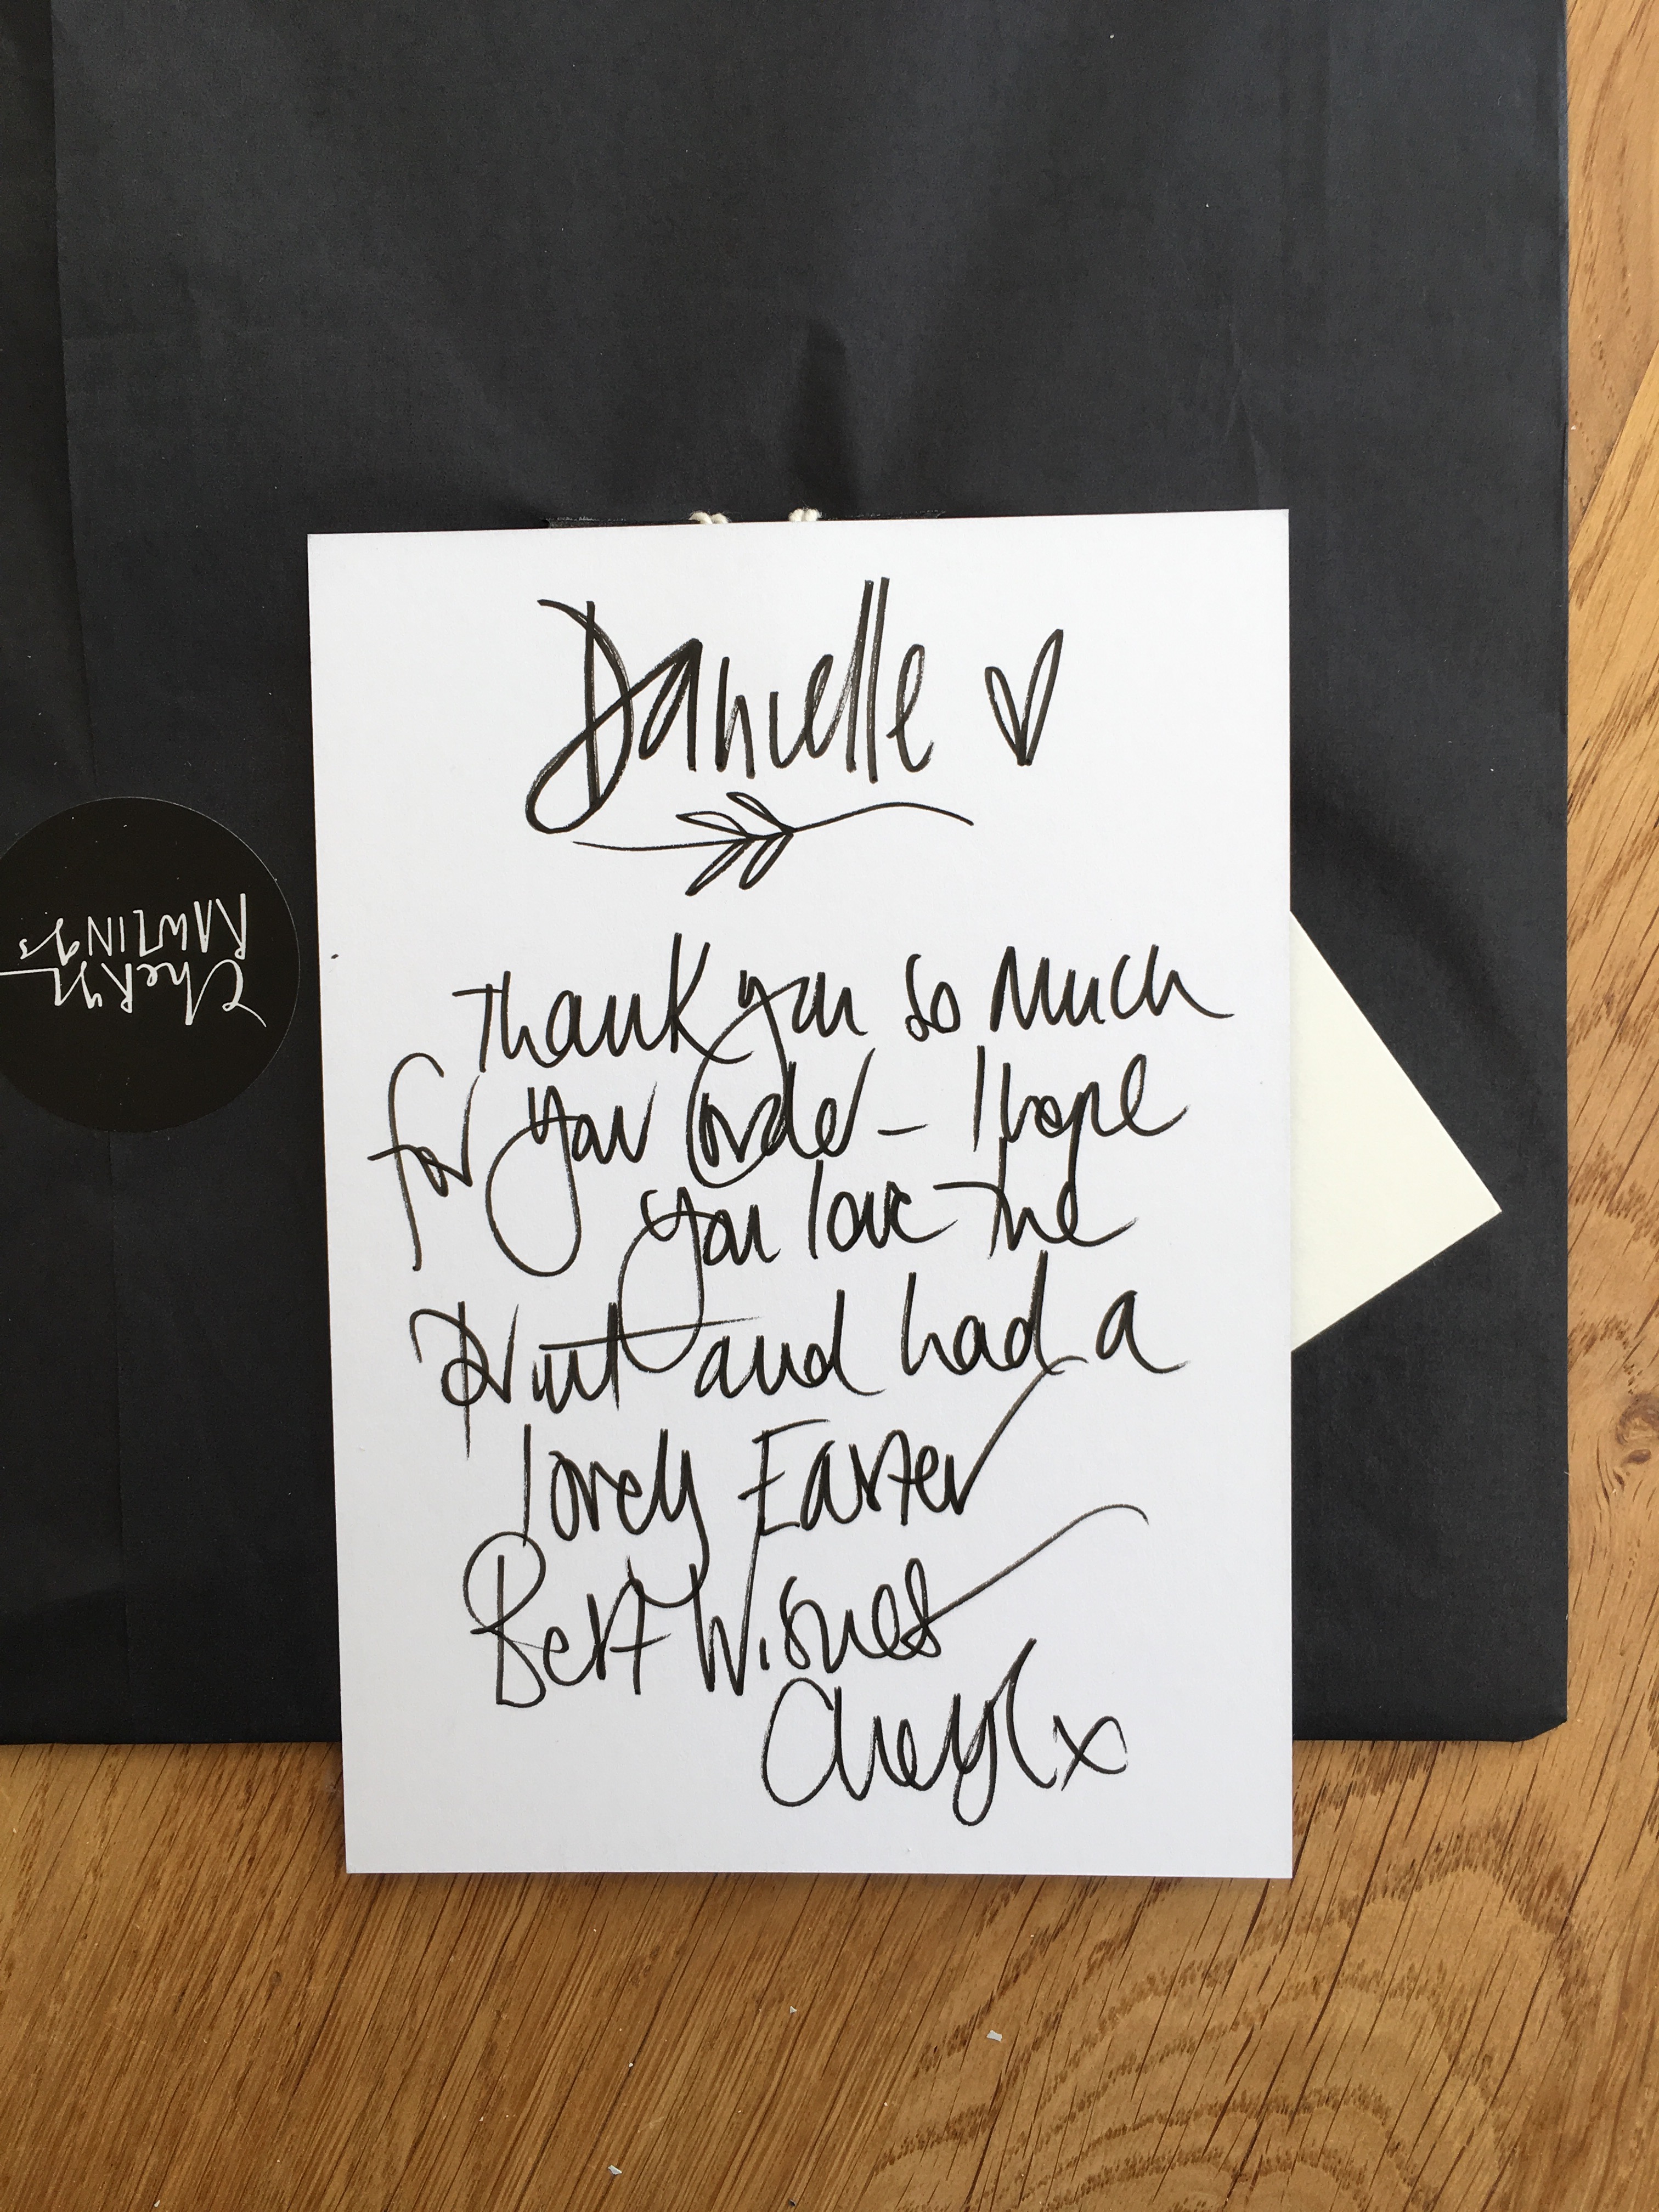 Danielle
Thank you so much
for your order – I hope
you love the
print and had a
lovely Easter
Best Wishes
Cheryl x
Cheryl
RAWLINGS